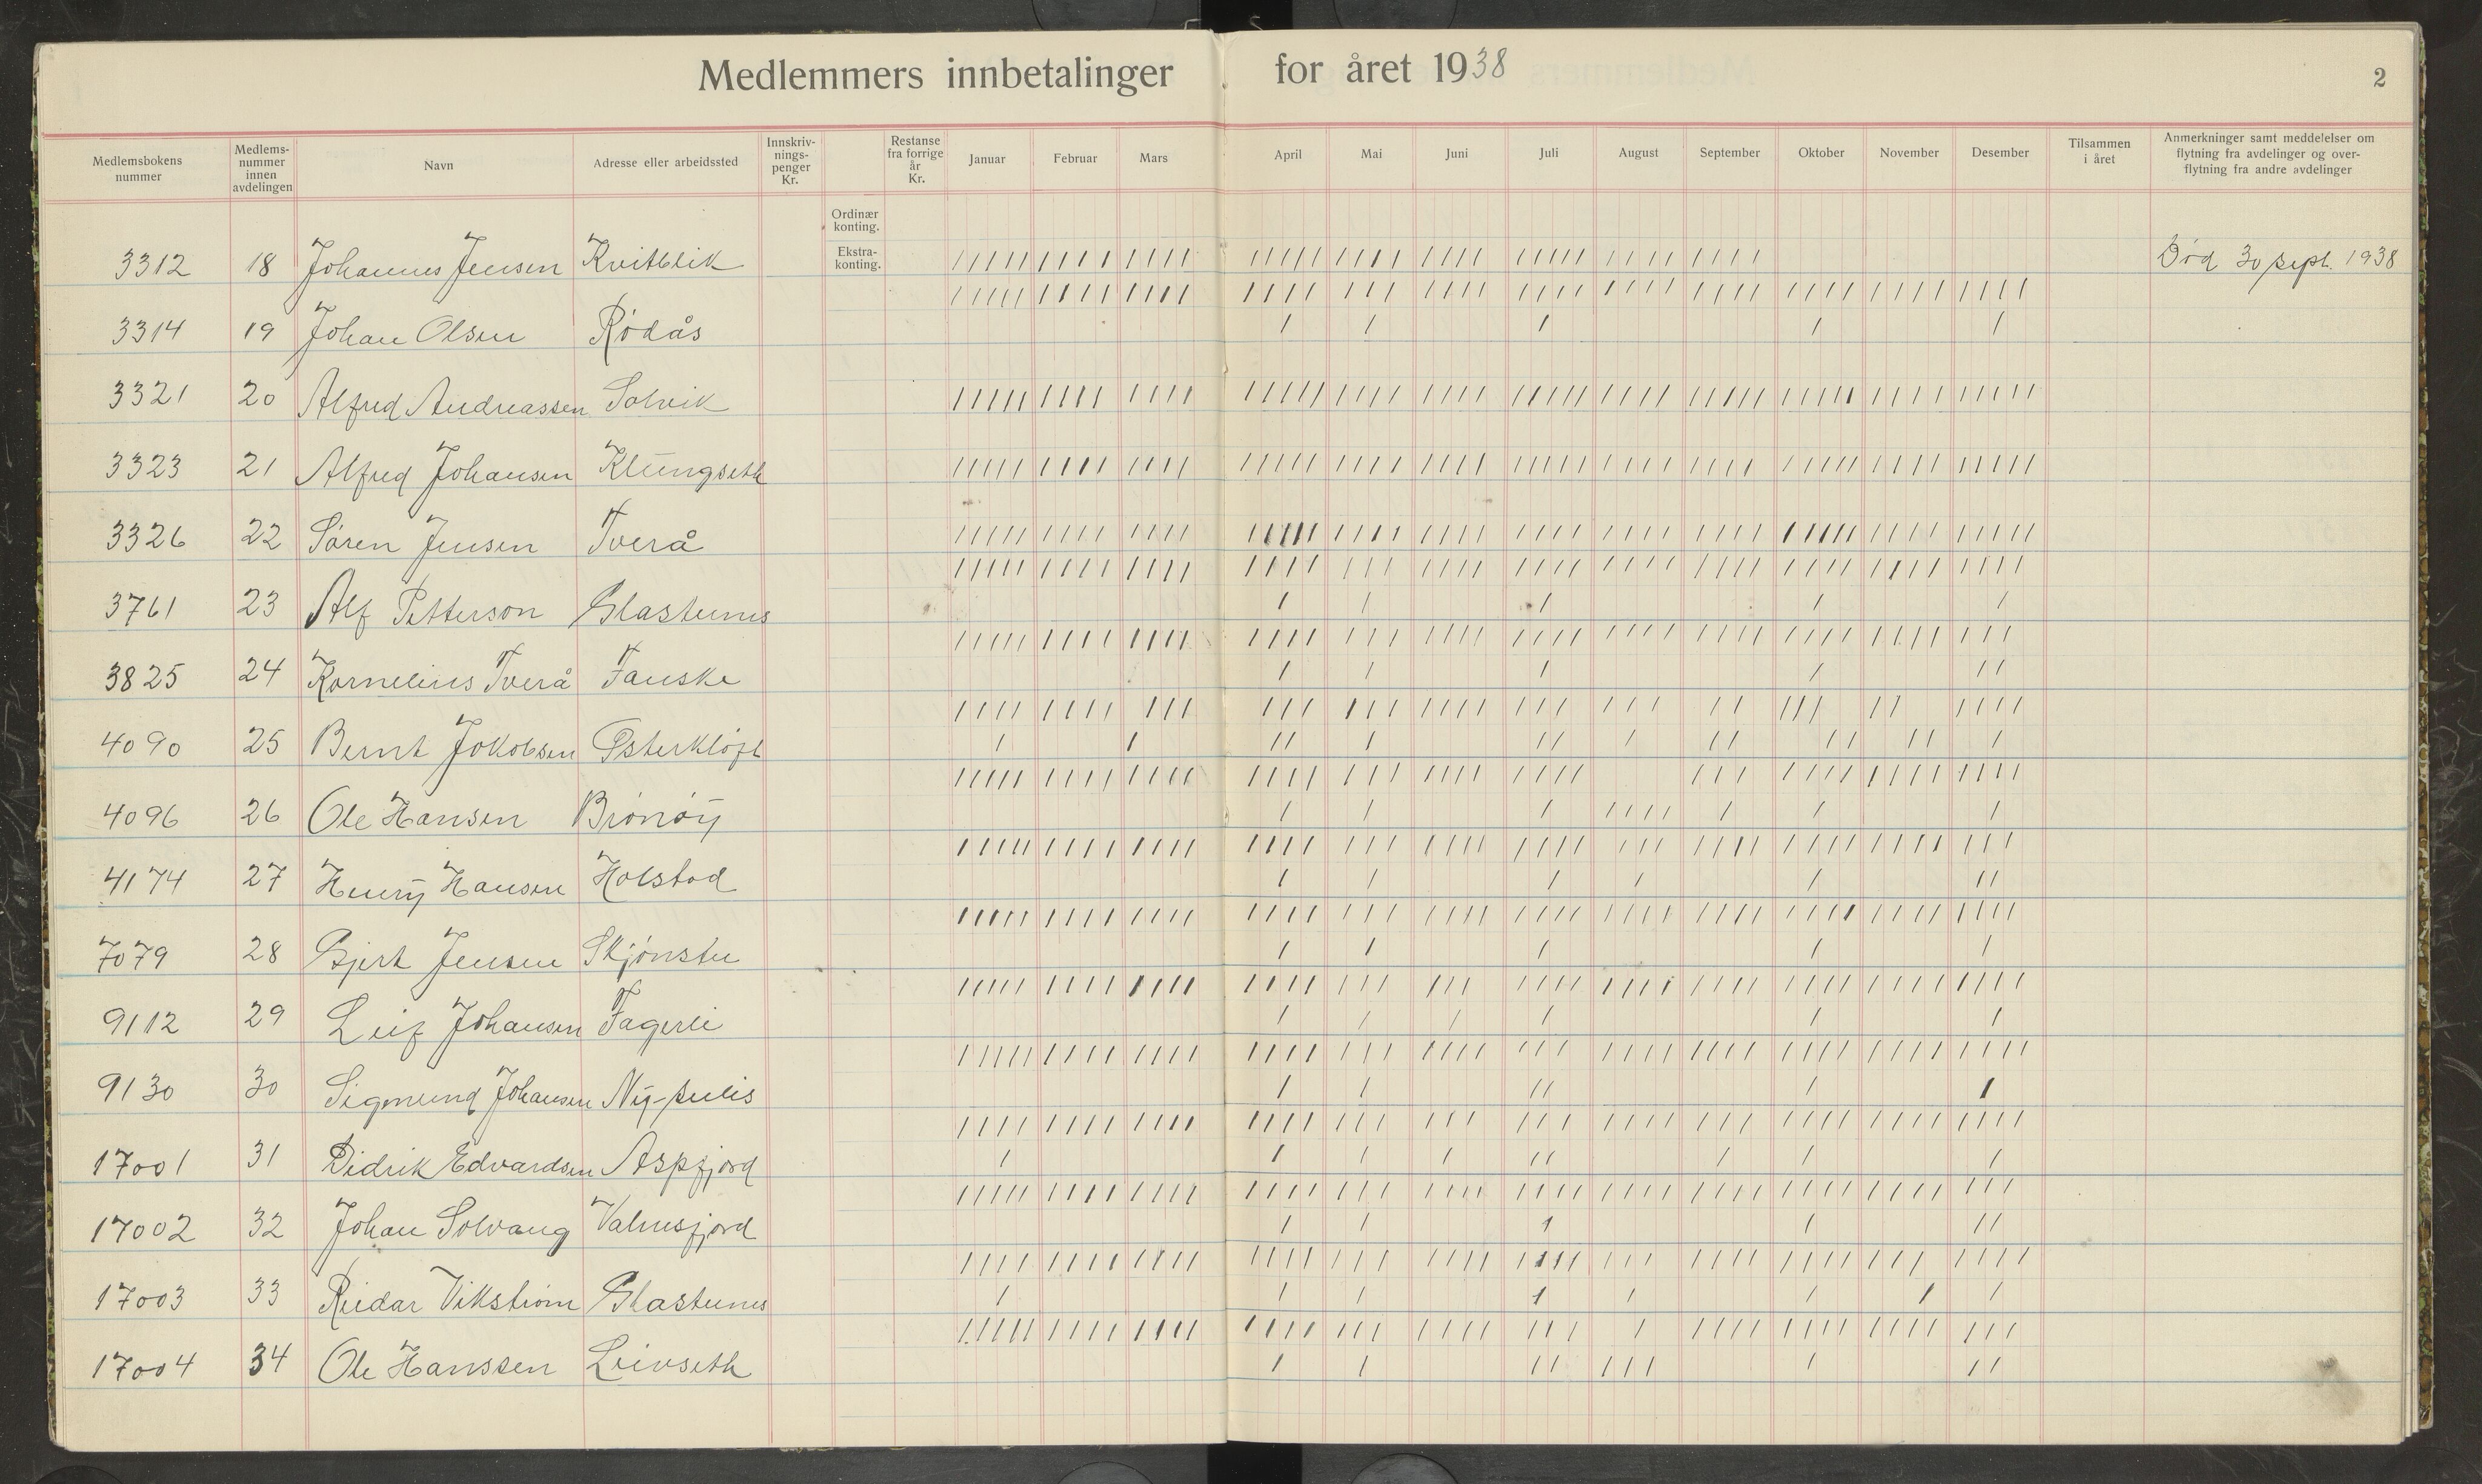 Medlemmers innbetalinger for året 1938
2
Medlemsbokens nummer
Medlems-nummer innen avdelingen
Navn
Adresse eller arbeidssted
Innskriv-nings-penger Kr.
Restanse fra forrige år Kr.
Januar Februar Mars April Mai Juni Juli August September Oktober November Desember
Tilsammen i året
Anmerkninger samt meddelelser om flytning fra avdelinger og over-flytning fra andre avdelinger
Ordinær konting.
Ekstra-konting.
3312 18 Johannes Jensen Kvitblik Død 30 sept. 1938
3314 19 Johan Olsen Rødås
3321 20 Alfred Andreassen Solvik
3323 21 Alfred Johansen Klungseth
3326 22 Søren Jensen Tverå
3761 23 Alf Petterson Glastunes
3825 24 Kornelius Tverå Fauske
4090 25 Bernt Jokobsen Østerkløft
4096 26 Ole Hansen Brønøy
4174 27 Henry Hansen Holstad
7079 28 Bjert Jensen Skjønstu
9112 29 Leif Johansen Fagerli
9130 30 Sigmund Johansen Ny-sulis
17001 31 Didrik Edvardsen Aspfjord
17002 32 Johan Solvang Valnesfjord
17003 33 Reidar Vikstrøm Glastunes
17004 34 Ole Hanssen Leivseth